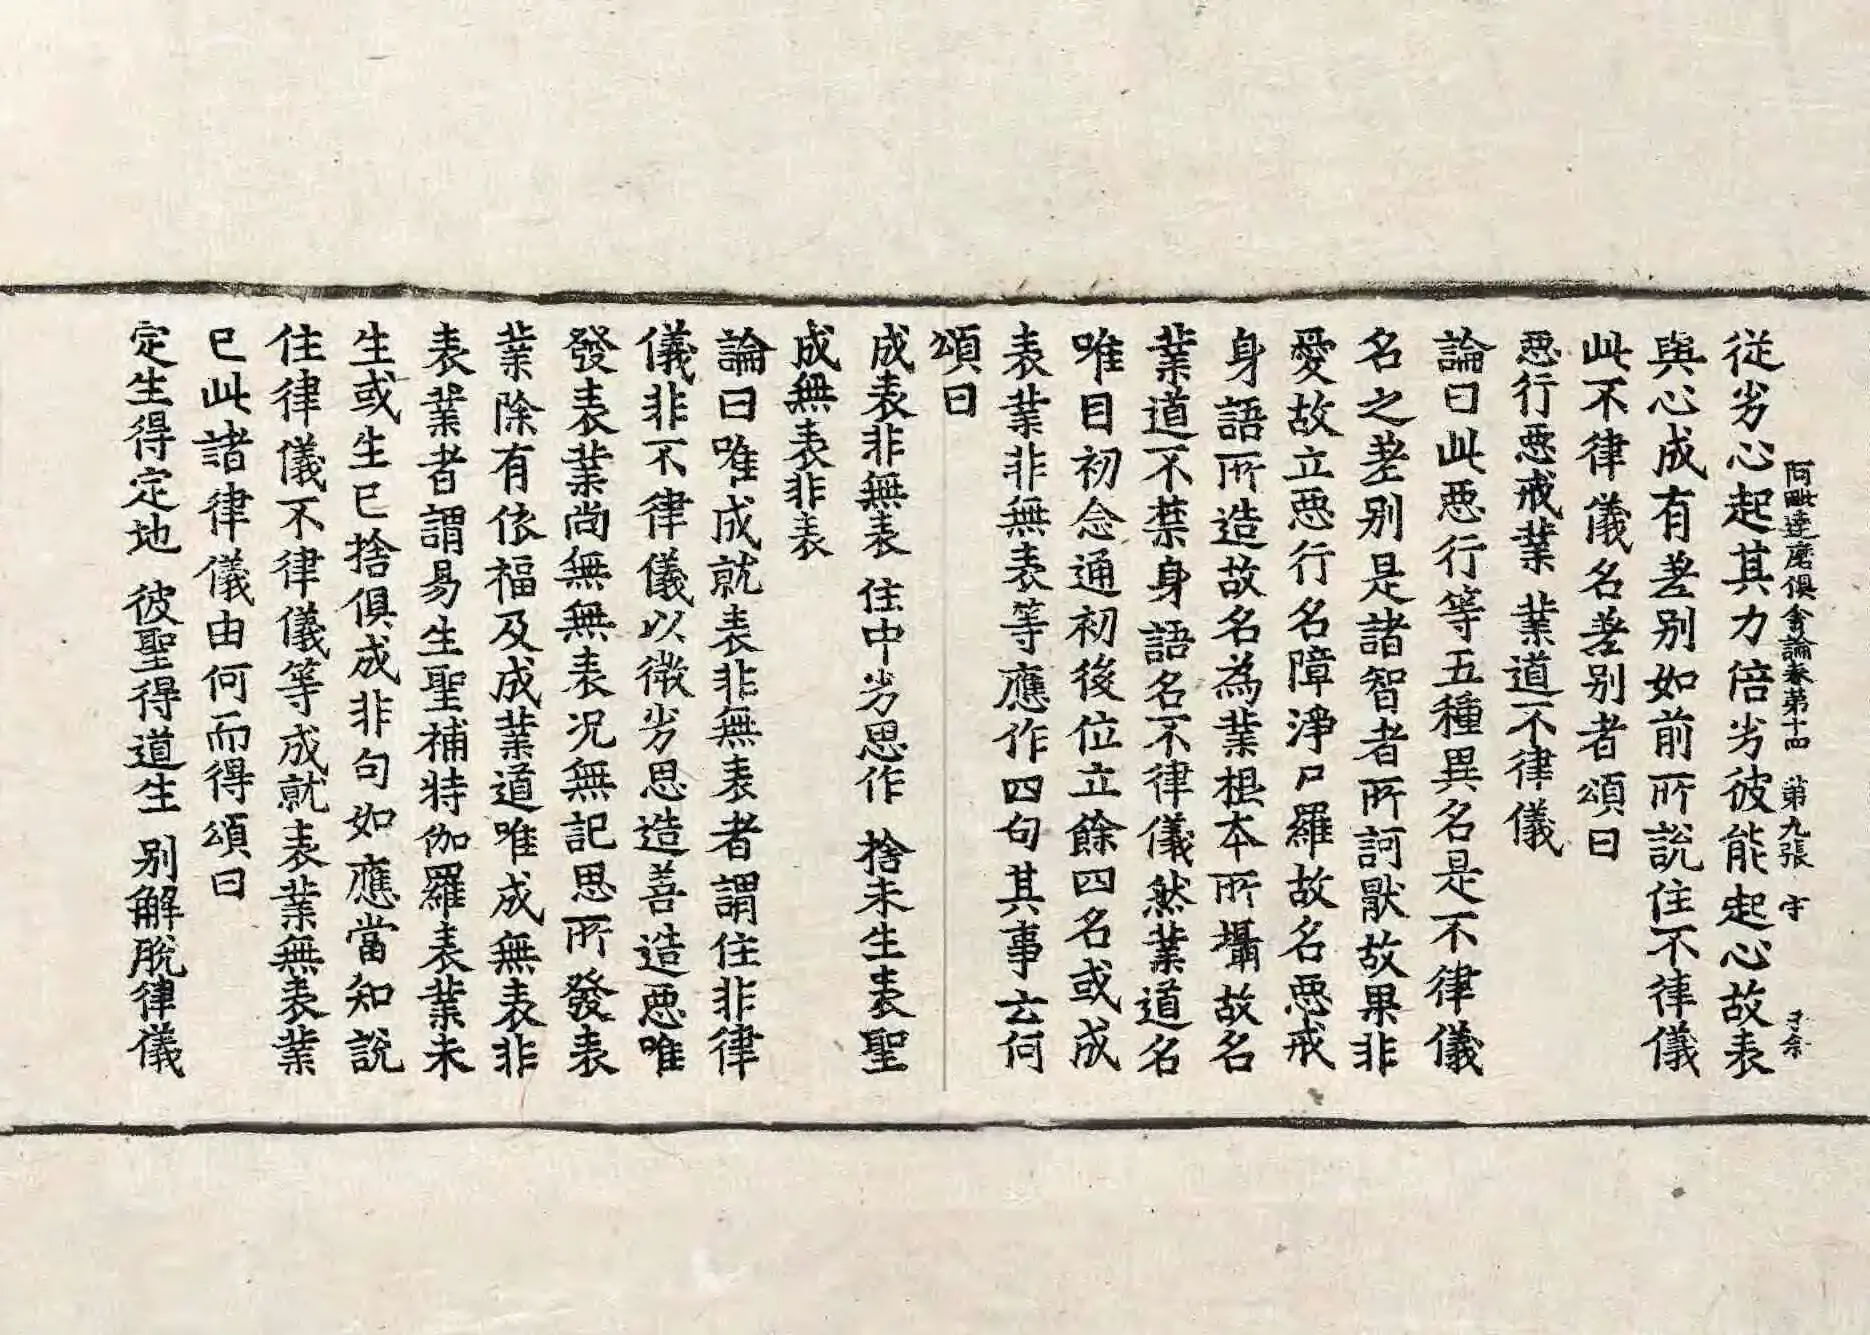 阿毗達磨俱舍論卷第十四 第九張 守
從劣心起其力倍劣彼能起心故表
與心成有差别如前所說住不律儀
此不律儀名差别者頌曰
惡行惡戒業 業道不律儀
論曰此惡行等五種異名是不律儀
名之差别是諸智者所訶猒故果非
愛故立惡行名障淨尸羅故名惡戒
身語所造故名為業根本所攝故名
業道不禁身語名不律儀然業道名
唯目初念通初後位立餘四名或成
表業非無表等應作四句其事云何
頌曰
成表非無表 住中劣思作 捨未生表聖
成無表非表
論曰唯成就表非無表者謂住非律
儀非不律儀以微劣思造善造惡唯
發表業尚無無表况無記思所發表
業除有依福及成業道唯成無表非
表業者謂易生聖補特伽羅表業未
生或生已捨俱成非句如應當知說
住律儀不律儀等成就表業無表業
已此諸律儀由何而得頌曰
定生得定地 彼聖得道生 别解脫律儀